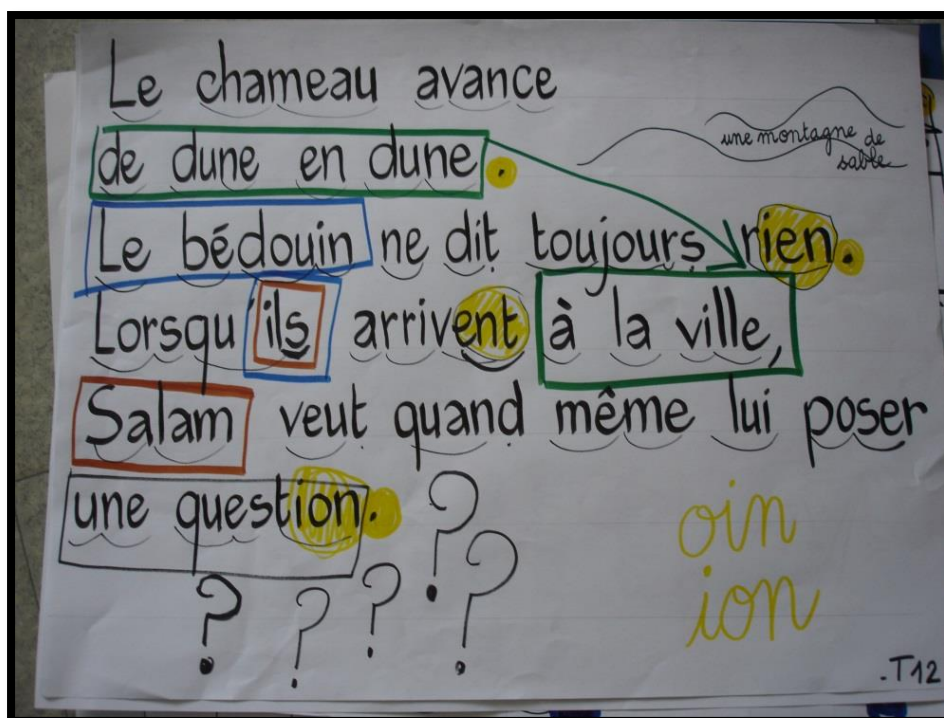 Le chameau avance
de dune en dune.
une montagne de
sable
Le bédouin ne dit toujours rien.
Lorsqu'ils arrivent à la ville,
Salam veut quand même lui poser
une question.
? ? ? ? ?
oin
ion
-T12